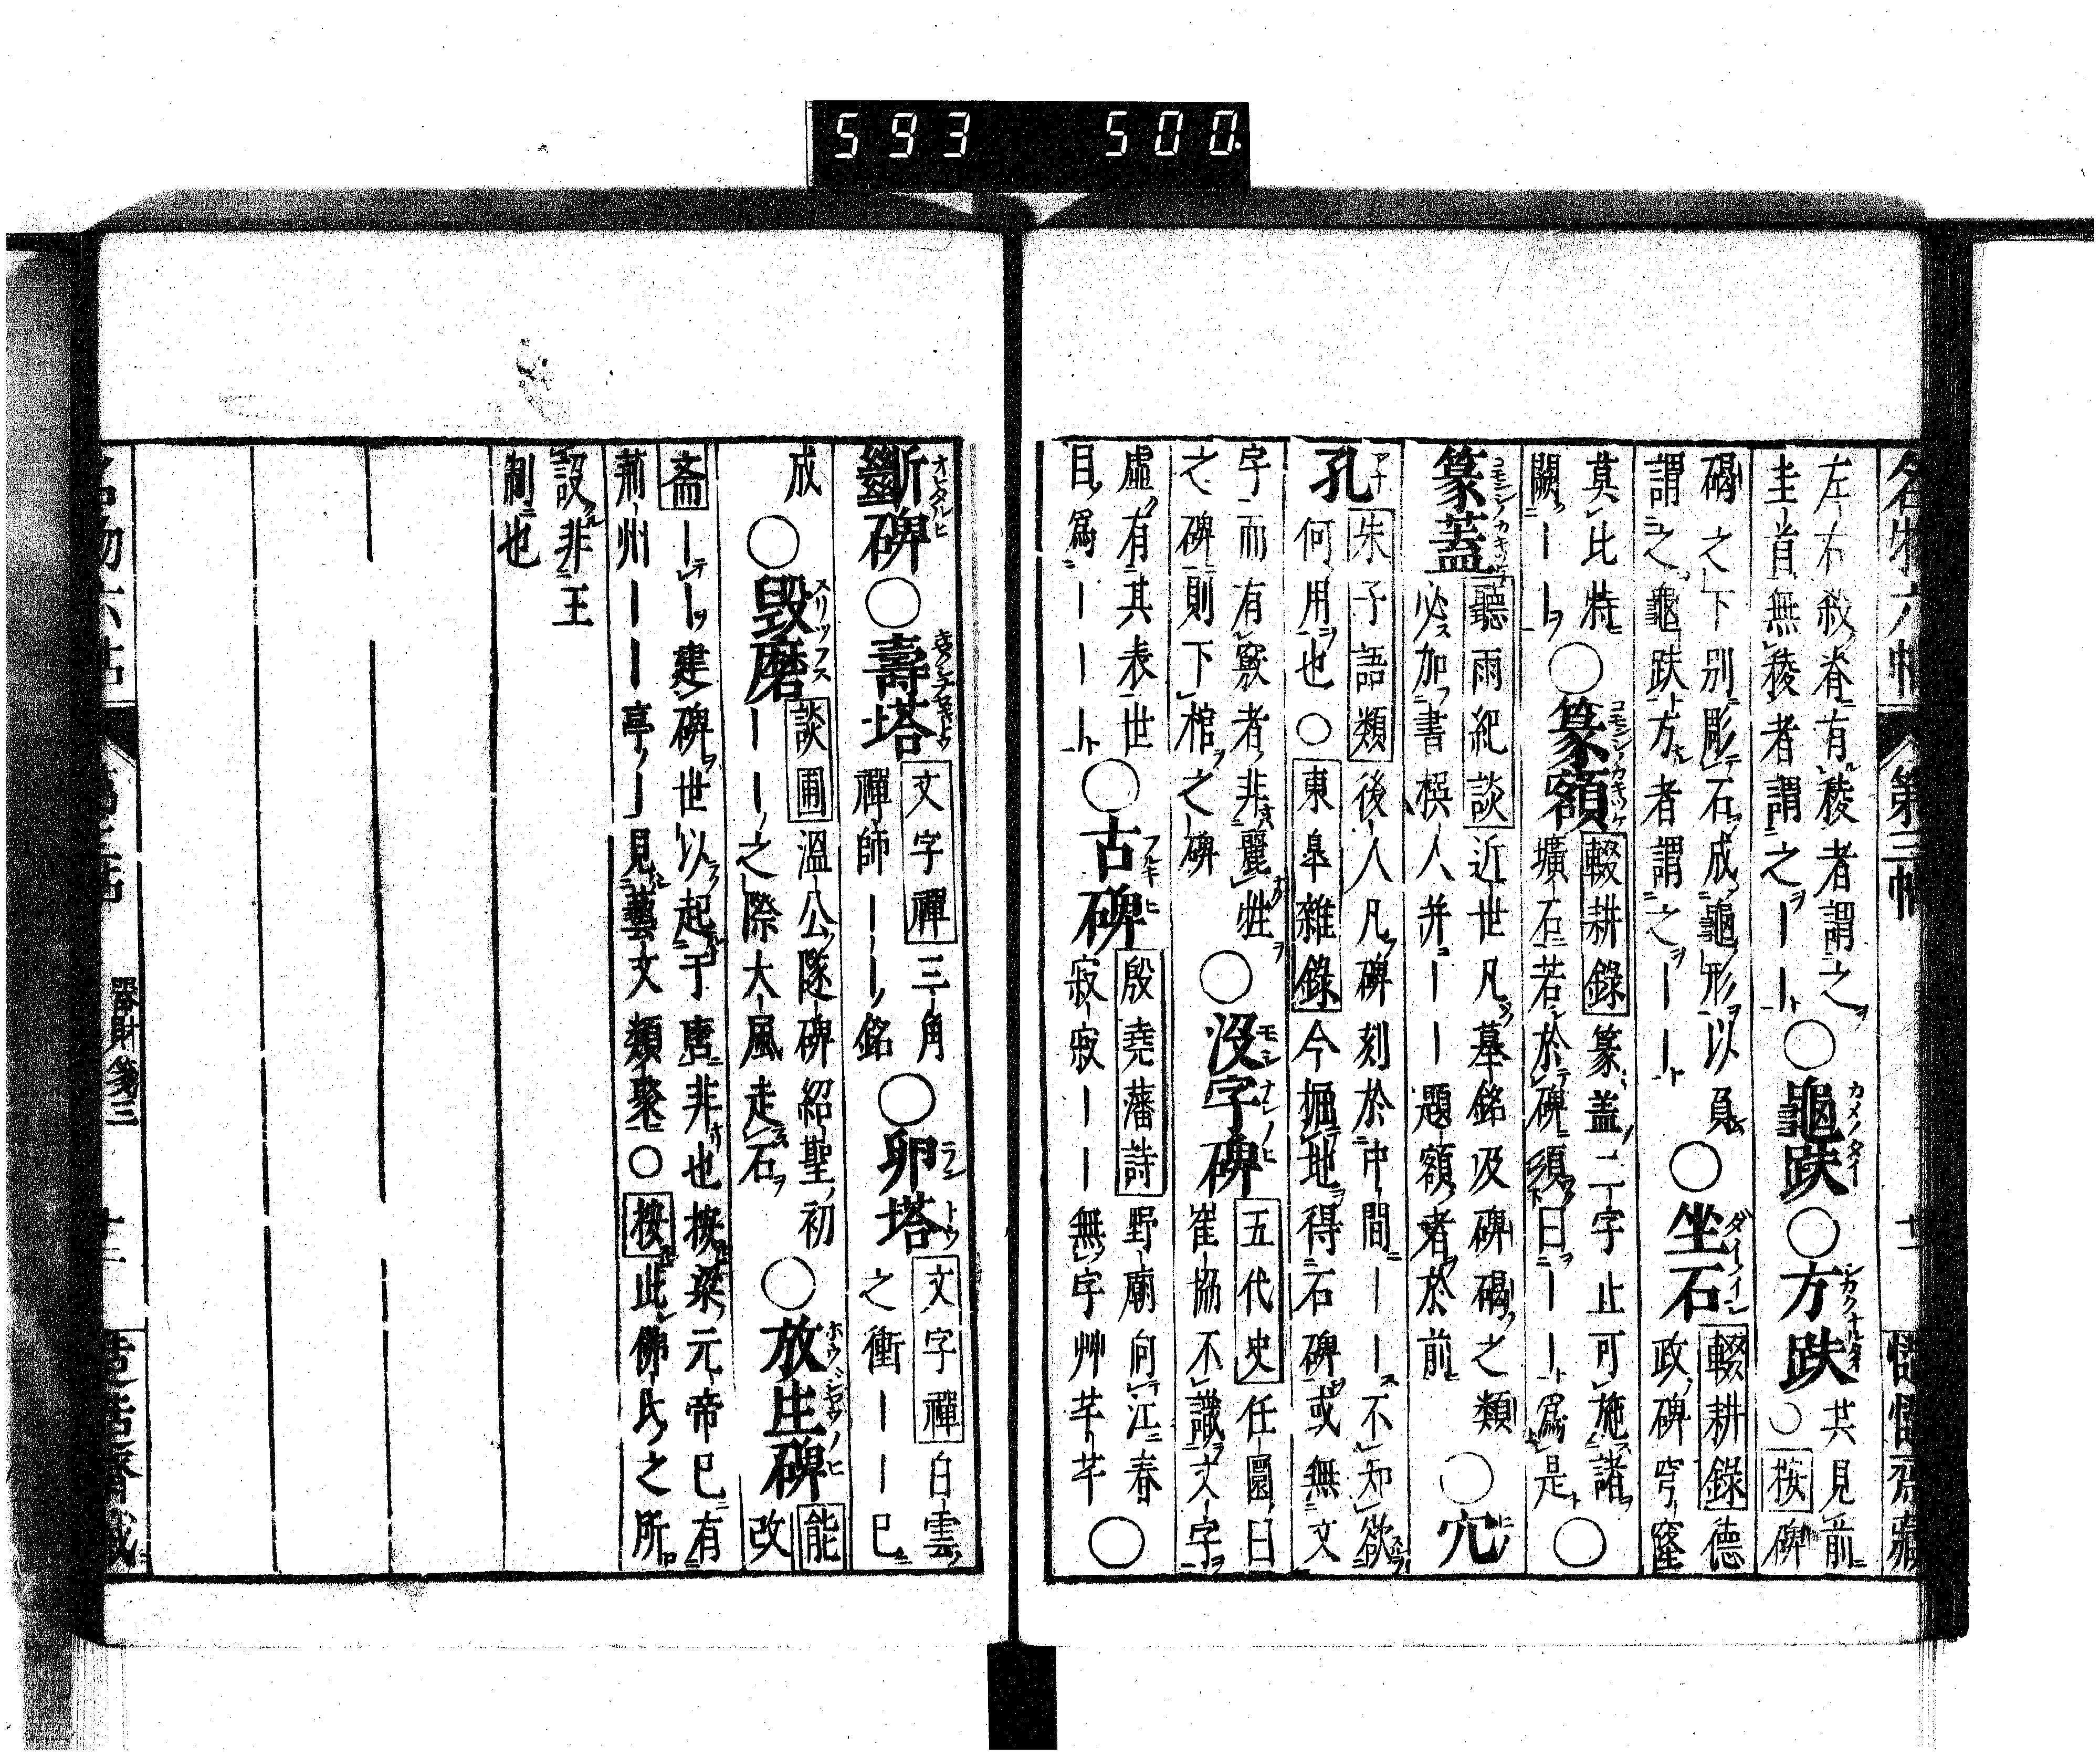 593 500
名物六帖 第三帖 十一 慥慥齋藏
左右殺脊有稜者謂之
圭首無稜者謂之｜｜
○龜趺○方趺
共見前
○按碑
碣之下別彫石成龜形以負
謂之龜趺方者謂之｜｜
○坐石
輟耕錄德
政碑穹窿
莫比特
闕｜｜
○篆額
輟耕錄篆蓋二字止可施諸
壙石若於碑須曰｜｜爲是
○
篆蓋
聽雨紀談近世凡墓銘及碑碣之類
必加書模人并｜｜題額者於前
○穴
孔
朱子語類後人凡碑刻於中間｜｜不知欲
何用也○東皐雜錄今掘地得石碑或無文
字而有竅者非麗牲
之碑則下棺之碑
○沒字碑
五代史任圜曰
崔協不識文字
虛有其表世
目爲｜｜｜
○古碑
殷堯藩詩野廟向江春
寂寂｜｜無字艸芊芊
○
斷碑○壽塔
文字禪三角
禪師｜｜銘
○卵塔
文字禪白雲
之衝｜｜已
成
○毀磨
談圃溫公隧碑紹聖初
｜｜之際大風走石
○放生碑
能
改
齋｜｜建碑世以起于唐非也按梁元帝已有
荊州｜｜亭｜見藝文類聚○按此佛氏之所
設非王
制也
器財箋三